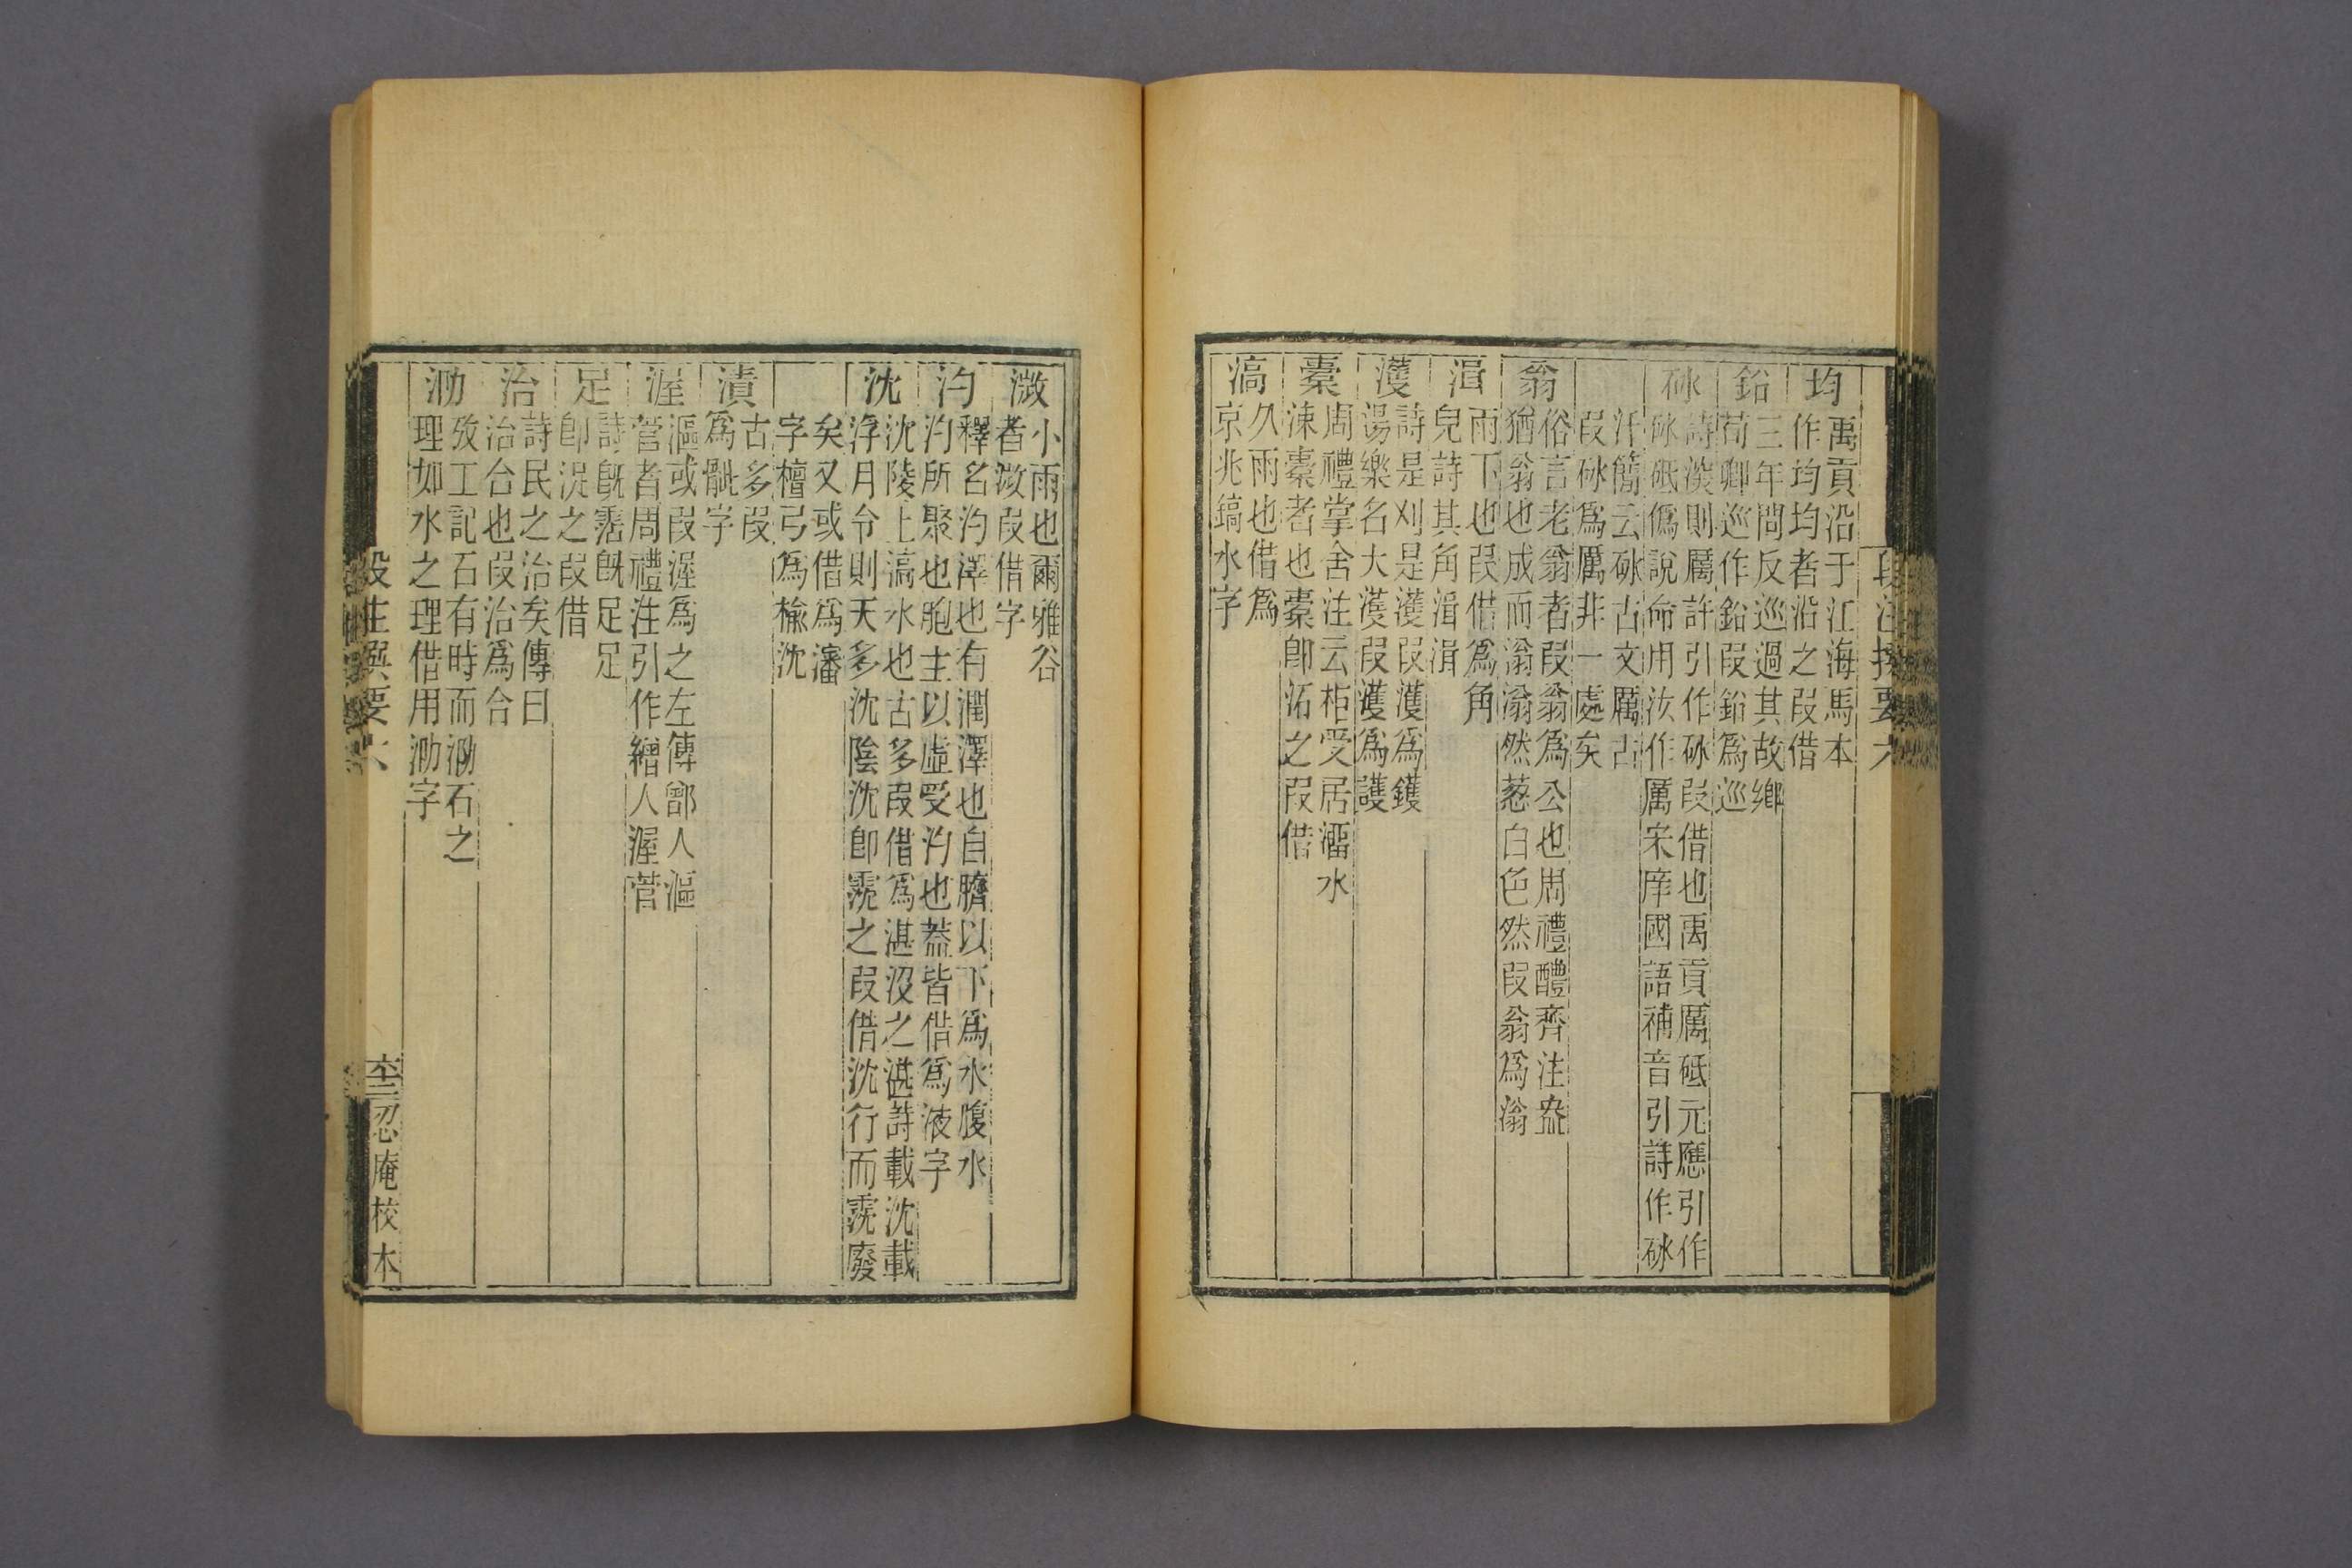 段注撰要六
均
禹貢沿于江海馬本
作均均者沿之叚借
鉛
三年問反巡過其故鄉
荀卿巡作鉛叚鉛爲巡
砅
詩深則厲許引作砅叚借也禹貢厲砥元應引作
砅砥僞說命用汝作厲宋庠國語補音引詩作砅
汗簡云砅古文厲古
叚砅爲厲非一處矣
翁
俗言老翁者叚翁爲公也周禮醴齊注盎
猶翁也成而滃滃然蔥白色然叚翁爲滃
湒
雨下也叚借爲角
皃詩其角湒湒
濩
詩是刈是濩叚濩爲鑊
湯樂名大濩叚濩爲頀
橐
周禮掌舍注云柜受居溜水
涑橐者也橐卽沰之叚借
滈
久雨也借爲
京兆鎬水字
溦
小雨也爾雅谷
者溦叚借字
汋
釋名汋澤也有潤澤也自臍以下爲水腹水
汋所聚也胞主以虛受汋也葢皆借爲液字
沈
沈陵上滈水也古多叚借爲湛沒之湛詩載沈載
浮月令則天多沈陰沈卽霃之叚借沈行而霃廢
矣又或借爲瀋
字檀弓爲楡沈
漬
古多叚
爲骴字
渥
漚或叚渥爲之左傳鄫人漚
菅者周禮注引作繒人渥菅
足
詩旣霑旣足足
卽浞之叚借
治
詩民之洽矣傳曰
洽合也叚治爲合
泐
攷工記石有時而泐石之
理如水之理借用泐字
段注撰要六
六十三
忍庵校本